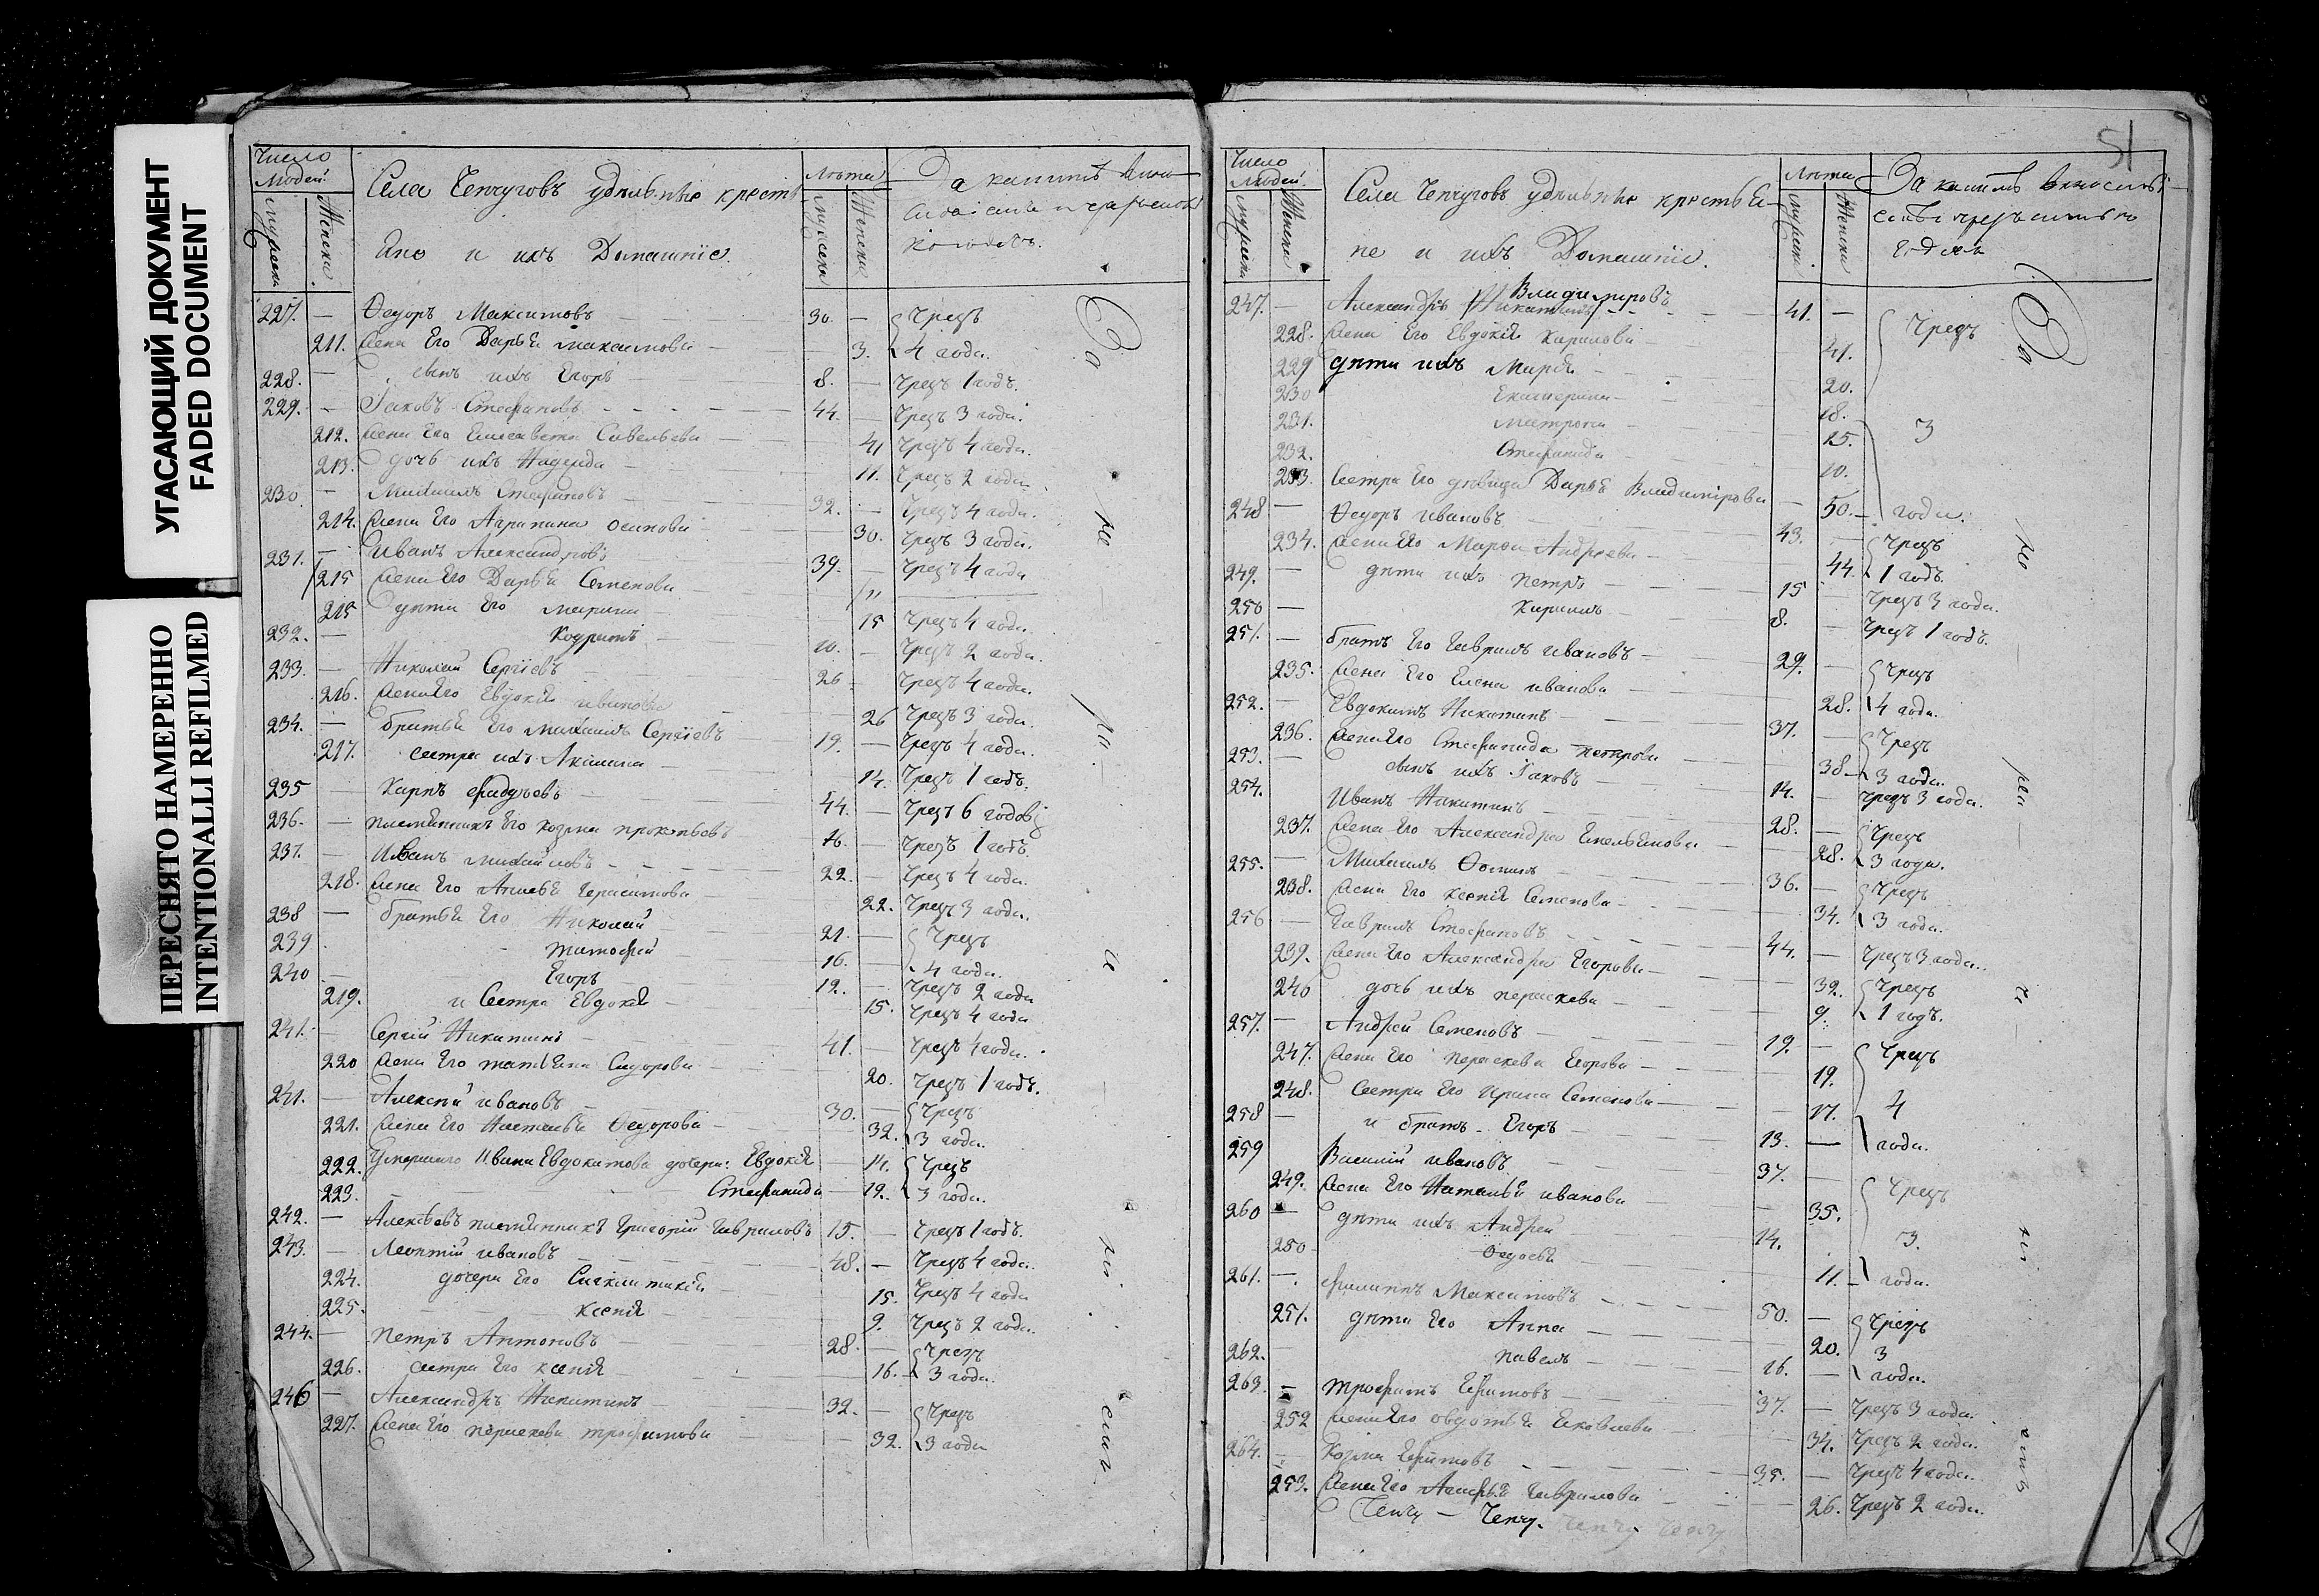 УГАСАЮЩИЙ ДОКУМЕНТ
FADED DOCUMENT
ПЕРЕСНЯТО НАМЕРЕННО
INTENTIONALLI REFILMED
Число людей
мужеска
женска
Села Чепчуговъ удѣльные крестья
ѣне и ихъ Домашніе.
лѣта
мужеска
женска
227. — Ѳедоръ Максимовъ — 30. — Чрезъ
211. жена Его Дарья максимова — 3. 4 года.
228. — сынъ ихъ Егоръ — 8. — Чрезъ 1 годъ.
229. — Іаковъ Стефановъ — 44. — Чрезъ 3 года.
212. жена Его Елисавета Савельева — 41 Чрезъ 4 года.
213. дочь ихъ Надежда — 11. Чрезъ 2 года.
230 — Михаилъ Стефановъ — 32. — Чрезъ 4 года.
214. жена Его Агрипина осипова — 30. Чрезъ 3 года.
231. — Иванъ Александровъ — 39. — Чрезъ 4 года
215 жена Его Дарья Семенова — "
215 дѣти Его марина — 15 Чрезъ 4 года.
232. — — 10. — Чрезъ 2 года.
233. — Николай Сергіевъ — 26 — Чрезъ 4 года.
216. жена Его Евдокія иванова — 26 Чрезъ 3 года.
234. — братья Его михаилъ Сергіевъ — 19. — Чрезъ 4 года.
217. сестра ихъ Акилина — 14. Чрезъ 1 годъ.
235 — Карпъ — 44. — Чрезъ 6 годовъ
236. — племянникъ Его козма прокопьевъ 16. — Чрезъ 1 годъ.
237. — Иванъ михайловъ — 22. — Чрезъ 4 года.
218. жена Его Герасимова — 22. Чрезъ 3 года.
238 — братья Его Николай — 21. — Чрезъ
239 тимофей — 16. — 4 года.
240 — Егоръ — 12. — Чрезъ 2 года
219. и Сестра Евдокія — 15. Чрезъ 4 года
241. — Сергій Никитинъ — 41. — Чрезъ 4 года.
220 жена Его татьяна Сидорова — 20. Чрезъ 1 годъ.
241. — Алексѣй ивановъ — 30. — Чрезъ
221. жена Его Наталья Ѳедорова — 32. 3 года.
222. Умершаго Ивана Евдокимова дочери: Евдокія — 14. Чрезъ
223. Стефанида — 12. 3 года.
242. — Алексѣевъ племянникъ Григорій Гавриловъ 15. — Чрезъ 1 годъ.
243. — Леонтій ивановъ — 48. — Чрезъ 4 года.
224. дочери Его — 15. Чрезъ 4 года
225. ксенія — 9. Чрезъ 2 года.
244. — Петръ Антоновъ — 28. — Чрезъ
226. сестра Его ксенія — 16. — 3 года.
246 — Александръ Никитинъ — 32. — Чрезъ
227. жена Его параскева трофимова — 32. 3 года
51
Число людей.
мужеска
женска
Села Чепчуговъ удѣльные крестья-
не и ихъ Домашніе.
лѣта
мужеска.
женска
Владимировъ
247. — Александръ Никитинъ — 41. — Чрезъ
228. жена Его Евдокія Кирилова — 41.
229 дѣти ихъ Марія — 20.
230 Екатерина — 18.
231. матрона — 15. 3
232. Стефанида — 10.
233. Сестра Его дѣвица Дарья Владимірова — 50. — года.
248 — Ѳедоръ ивановъ — 43. — Чрезъ
234. жена Его Марфа Андреева — 44. 1 годъ.
249. — дѣти ихъ петръ — 15 — Чрезъ 3 года.
250 — Кирилъ — 8. — Чрезъ 1 годъ.
251. — братъ Его Гаврилъ ивановъ — 29. — Чрезъ
235. жена Его Елена иванова — 28. 4 года.
252. — Евдокимъ Никитинъ — 37. — Чрезъ
236. жена Его Стефанида петрова — 38 — 3 года.
253. — сынъ ихъ Іаковъ — 14. — Чрезъ 3 года.
254. Иванъ Никитинъ — 28. — Чрезъ
237. жена Его Александра Емельянова — 28. 3 года.
255. — Михаилъ Ѳоминъ — 36. — Чрезъ
238. жена Его ксенія Семенова — 34. 3 года.
256 — Гаврилъ Стефановъ — 44. — Чрезъ 3 года.
239. жена Его Александра Егорова — 32. Чрезъ
240 дочь ихъ параскева — 9. 1 годъ.
257. — Андрей Семеновъ — 19. — Чрезъ
247. жена Его параскева Егорова — 19.
248. Сестра Его Ирина Семенова — 17. 4
258 — и братъ Егоръ — 13. — года.
259 Василій ивановъ — 37. — Чрезъ
249. жена Его Наталья иванова — 35.
260 — дѣти ихъ Андрей — 14. 3.
250 — 11. — года.
261. — филиппъ Максимовъ — 50. — Чрезъ
251. дѣти Его Анна — 20. 3
262. — павелъ — 16. — года.
263. — трофимъ Ефимовъ — 37. — Чрезъ 3 года.
252 жена Его овдотья Яковлева — 34. Чрезъ 2 года.
264. — Козма Ефимовъ — 35. — Чрезъ 4 года.
253. жена Его Гаврилова — 26. Чрезъ 2 года.
Чепчу — Чепчу. Чепчу. Чепчу